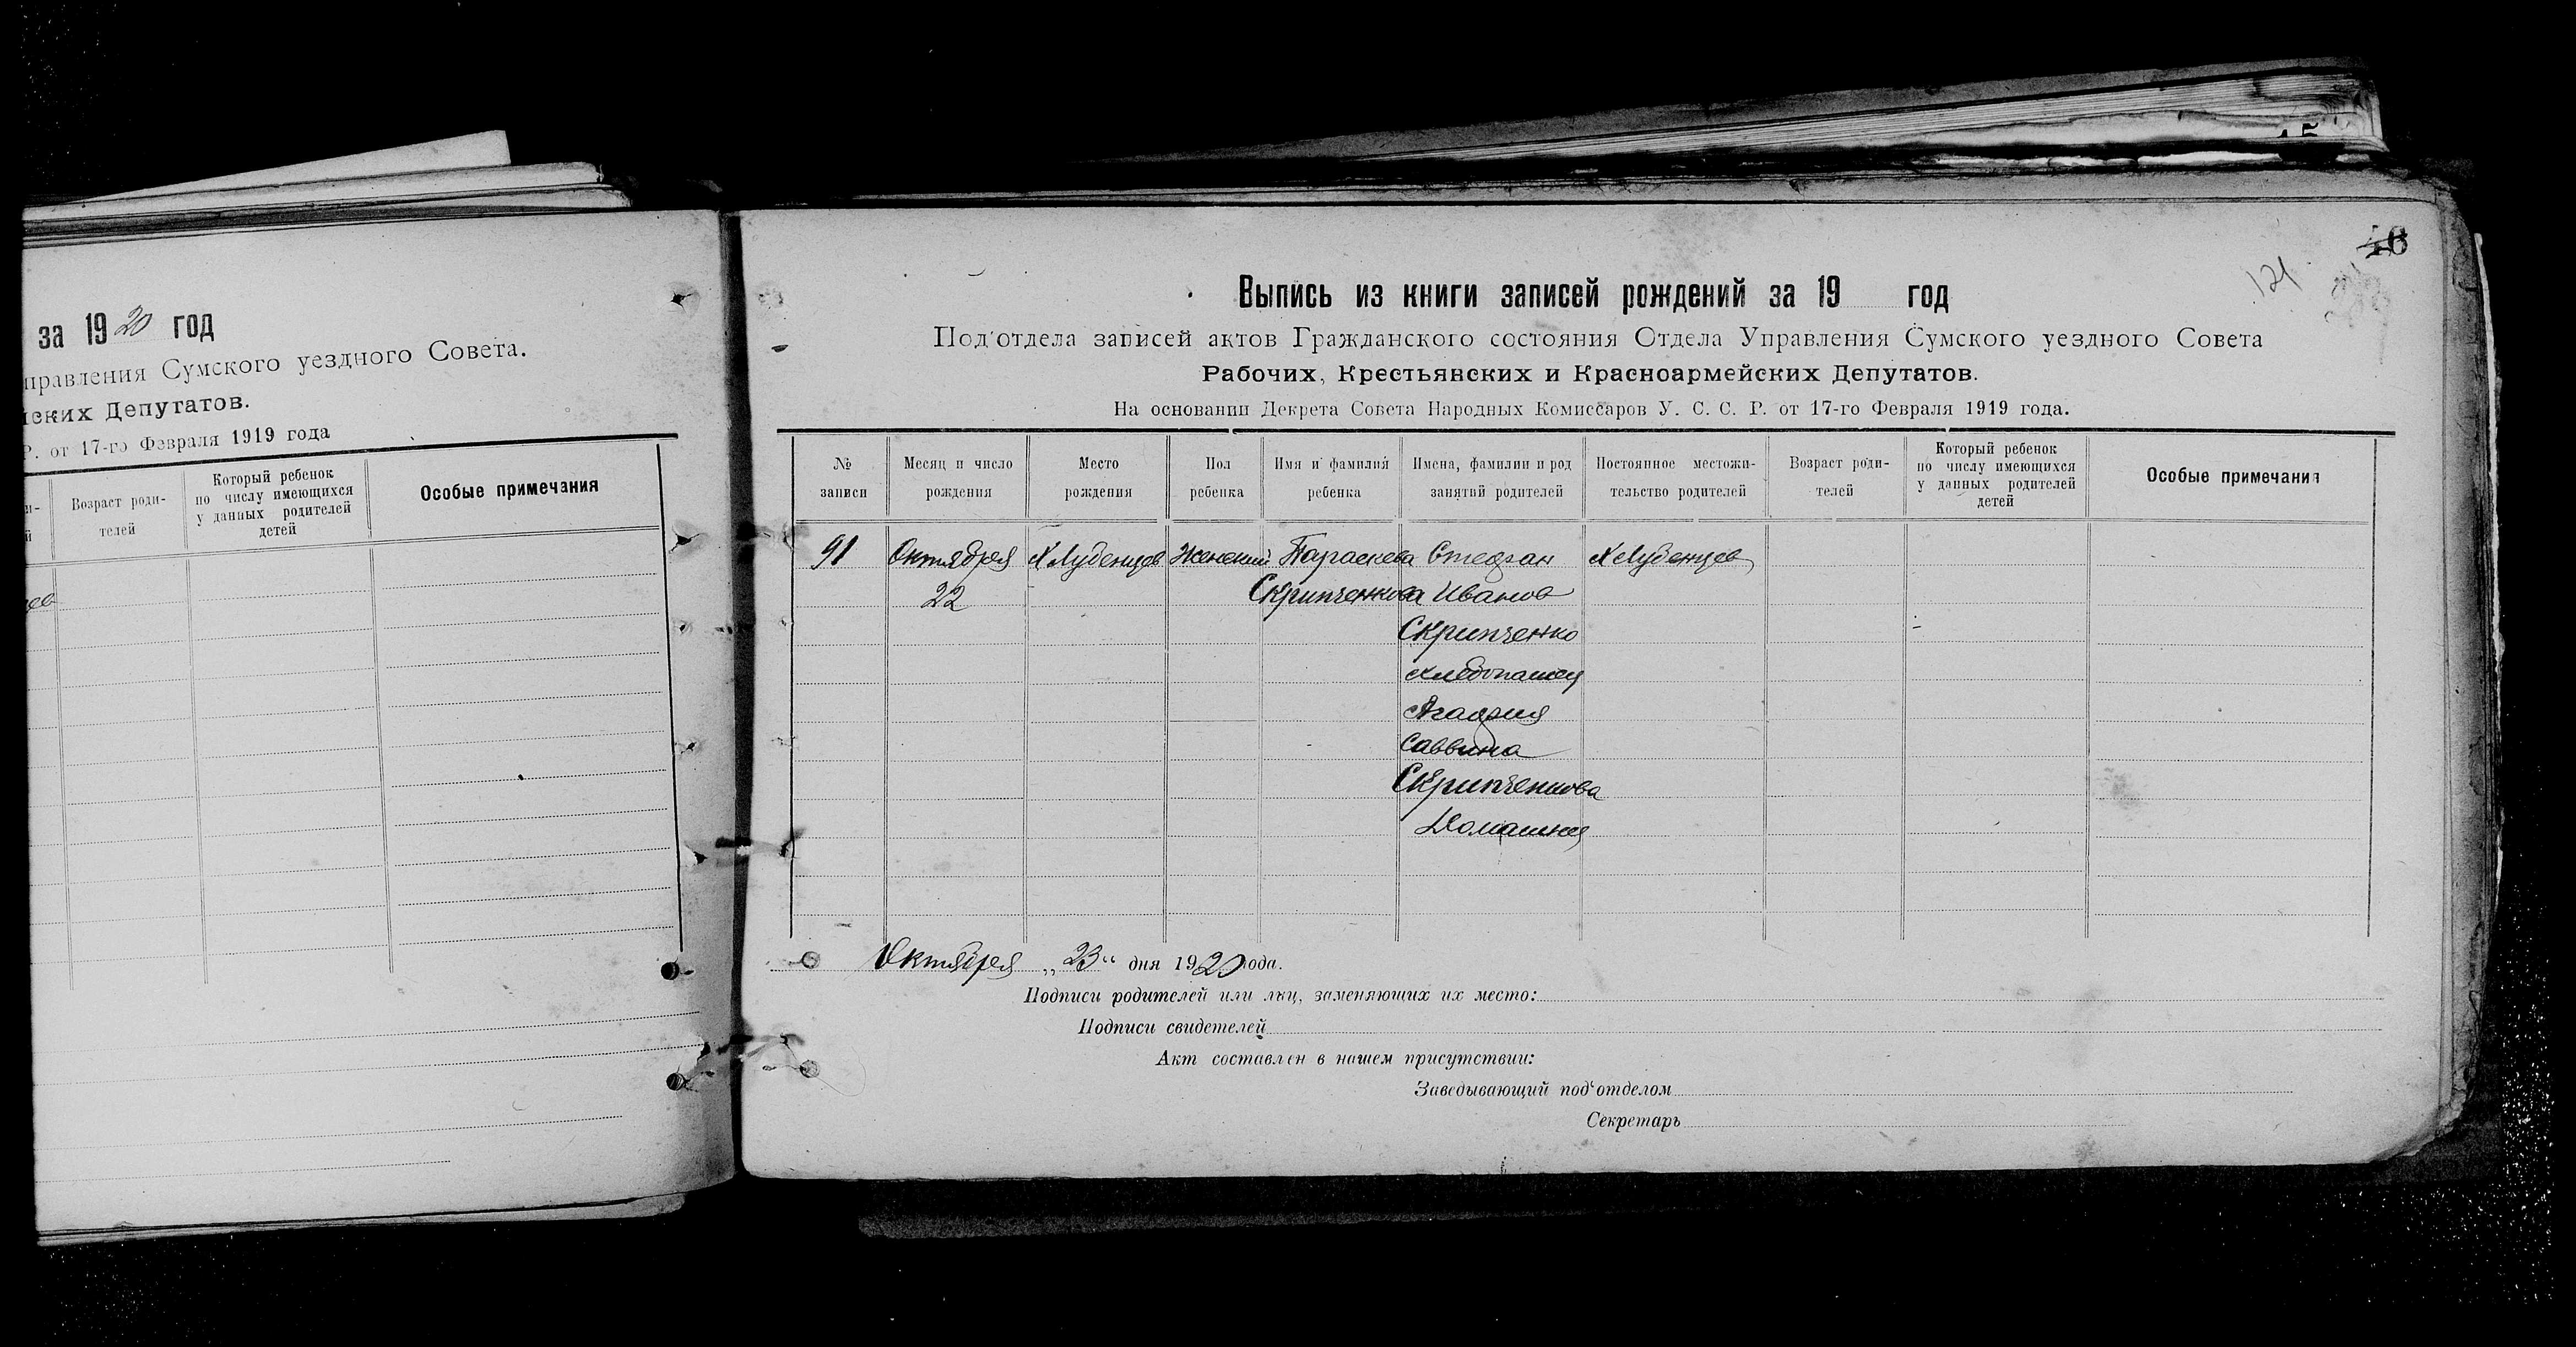 за 1920 год
правления Сумского уездного Совета.
йских Депутатов.
Р. от 17-го Февраля 1919 года
Возраст роди-
телей
Который ребенок
по числу имеющихся
у данных родителей
детей
Особые примечания
46
121
Выпись из книги записей рождений за 19 год
Под'отдела записей актов Гражданского состояния Отдела Управления Сумского уездного Совета
Рабочих, Крестьянских и Красноармейских Депутатов.
На основании Декрета Совета Народных Комиссаров У. С. С. Р. от 17-го Февраля 1919 года.
№
записи
Месяц и число
рождения
Место
рождения
Пол
ребенка
Имя и фамилия
ребенка
Имена, фамилии и род
занятий родителей
Постоянное местожи-
тельство родителей
Возраст роди-
телей
Который ребенок
по числу имеющихся
у данных родителей
детей
Особые примечания
91 Октября Х Лубенцев Женский Параскева Стефан Х Лубенцев
22 Скрипченкова Иванов
Скрипченко
хлебопашец
Агафия
Саввина
Скрипченкова
Домашняя
Октября „23“ дня 1920 года.
Подписи родителей или лиц, заменяющих их место:
Подписи свидетелей
Акт составлен в нашем присутствии:
Заведывающий под'отделом
Секретарь